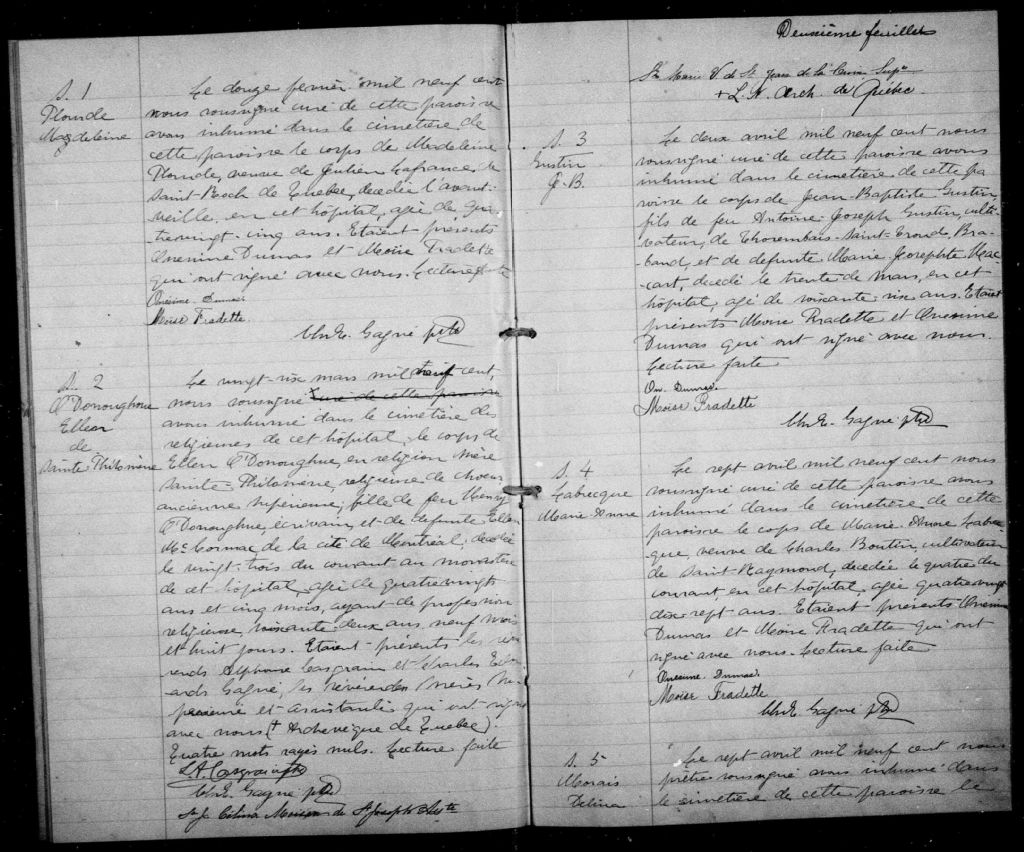 S. 1
Plourde
Magdeleine
Le douze février mil neuf cent
nous soussigné curé de cette paroisse
avons inhumé dans le cimetière de
cette paroisse le corps de Madeleine
Plourde, veuve de Julien Lafrance, de
Saint-Roch de Québec, décédée l'avant-
veille, en cet hôpital, agée de qua
-trevingt-cinq ans. Etaient présents
Onésime Dumas et Moïse Fradette
qui ont signé avec nous. Lecture faite
Onésime Dumas
Moise Fradette
Chs E. Gagné ptre
S. 2
O'Donoughue
Ellen
de
Sainte Philomène
Le vingt-six mars mil neuf cent,
nous soussigné curé de cette paroisse
avons inhumé dans le cimetière des
religieuses de cet hôpital, le corps de
Ellen O'Donoughue, en religion Mère
Sainte-Philomène, religieuse de choeur
ancienne supérieure, fille de feu Henry
O'Donoughue, écrivain, et de defunte Ellen
McCormac, de la cité de Montréal, décédée
le vingt-trois du courant au monastère
de cet hôpital, agée de quatrevingts
ans et cinq mois, ayant de profession
religieuse, soixante-deux ans, neuf mois
et huit jours. Etaient-présents les révé
rends Alphonse Casgrain et Charles Edou
ards Gagné, les révérendes Mères Su-
périeure et assistante qui ont signé
avec nous († Archevêque de Québec).
Quatre mots rayés nuls. Lecture faite
L. A. Casgrain ptre
Chs E. Gagné ptre
Sr. de St Joseph
Deuxième feuillet
Sr Marie V. de St Jean de la Croix Supre
+ L. N. Arch. de Québec
S. 3
Gustin
J.-B.
Le deux avril mil neuf cent nous
soussigné curé de cette paroisse avons
inhumé dans le cimetière de cette pa
roisse le corps de Jean-Baptiste Gustin
fils de feu Antoine-Joseph Gustin, culti-
vateur, de Thorembais-Saint-Trond, Bra-
band, et de defunte Marie-Josephte Mac-
cart, décédé le trente de mars, en cet
hôpital, agé de soixante-six ans. Etaient
présents Moïse Fradette et Onésime
Dumas qui ont signé avec nous.
Lecture faite
On. Dumas
Moise Fradette
Chs E. Gagné ptre
S. 4
Labrecque
Marie-Anne
Le sept avril mil neuf cent nous
soussigné curé de cette paroisse avons
inhumé dans le cimetière de cette
paroisse le corps de Marie-Anne Labrec-
que, veuve de Charles Boutin, cultivateur
de Saint-Raymond, décédée le quatre du
courant, en cet hôpital, agée quatrevingt
dix sept ans. Etaient présents Onésime
Dumas et Moïse Fradette qui ont
signé avec nous. Lecture faite
Onésime Dumas
Moise Fradette
Chs E. Gagné ptre
S. 5
Morais
Delina
Le sept avril mil neuf cent nous
prêtre soussigné avons inhumé dans
le cimetière de cette paroisse le